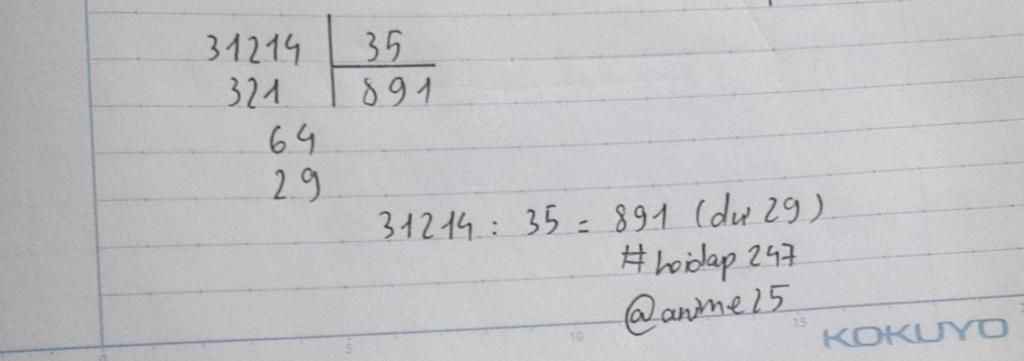 31214 35
321 891
64
29
31214 : 35 = 891 (dư 29)
#hoidap247
@anime25
5 10 15
KOKUYO